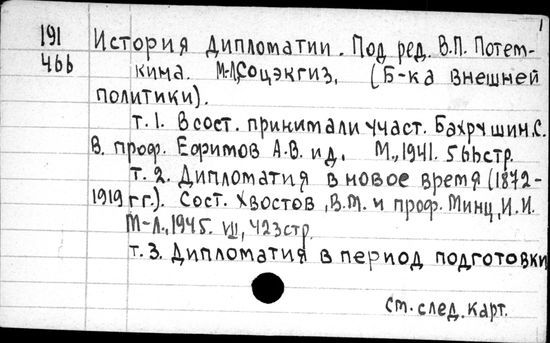 1
191 История дипломатии. Под ред. В.П. Потем-
466 кина. М-Л, Соцэкгиз, (Б-ка внешней
политики).
т. 1. В сост. принимали участ. Бахрушин. С.
В. проф. Ефимов А.В. и д. М., 1941. 566 стр.
т. 2. Дипломатия в новое время (1872-
1919 гг.). Сост. Хвостов, В.М. и проф. Минц, И.И.
М-Л., 1945. VIII, 423 стр.
т. 3. Дипломатия в период подготовки
См. след. карт.